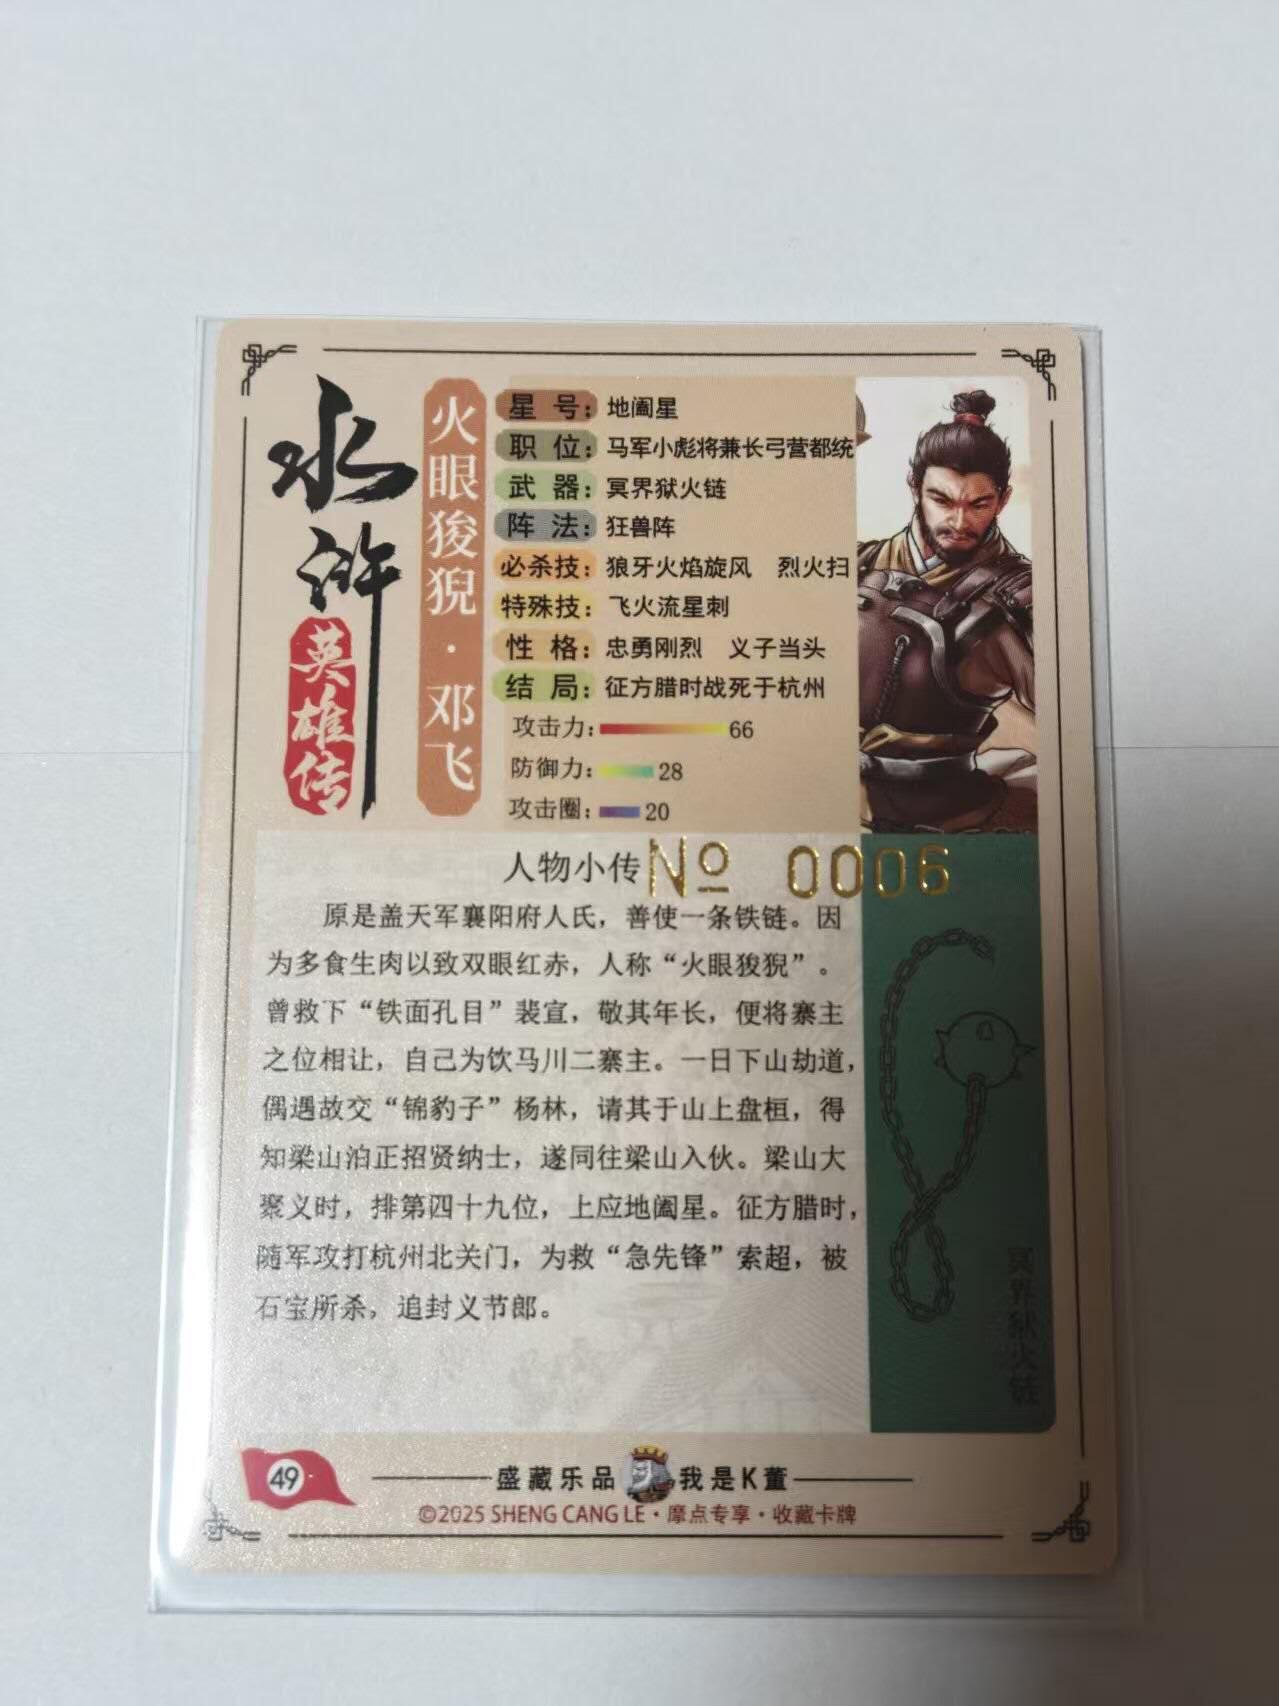 水浒
英雄传
火眼狻猊·邓飞
星 号：地阖星
职 位：马军小彪将兼长弓营都统
武 器：冥界狱火链
阵 法：狂兽阵
必杀技：狼牙火焰旋风 烈火扫
特殊技：飞火流星刺
性 格：忠勇刚烈 义子当头
结 局：征方腊时战死于杭州
攻击力：66
防御力：28
攻击圈：20
人物小传 № 0006
原是盖天军襄阳府人氏，善使一条铁链。因
为多食生肉以致双眼红赤，人称“火眼狻猊”。
曾救下“铁面孔目”裴宣，敬其年长，便将寨主
之位相让，自己为饮马川二寨主。一日下山劫道，
偶遇故交“锦豹子”杨林，请其于山上盘桓，得
知梁山泊正招贤纳士，遂同往梁山入伙。梁山大
聚义时，排第四十九位，上应地阖星。征方腊时，
随军攻打杭州北关门，为救“急先锋”索超，被
石宝所杀，追封义节郎。
冥界狱火链
49
盛藏乐品 我是K董
©2025 SHENG CANG LE·摩点专享·收藏卡牌